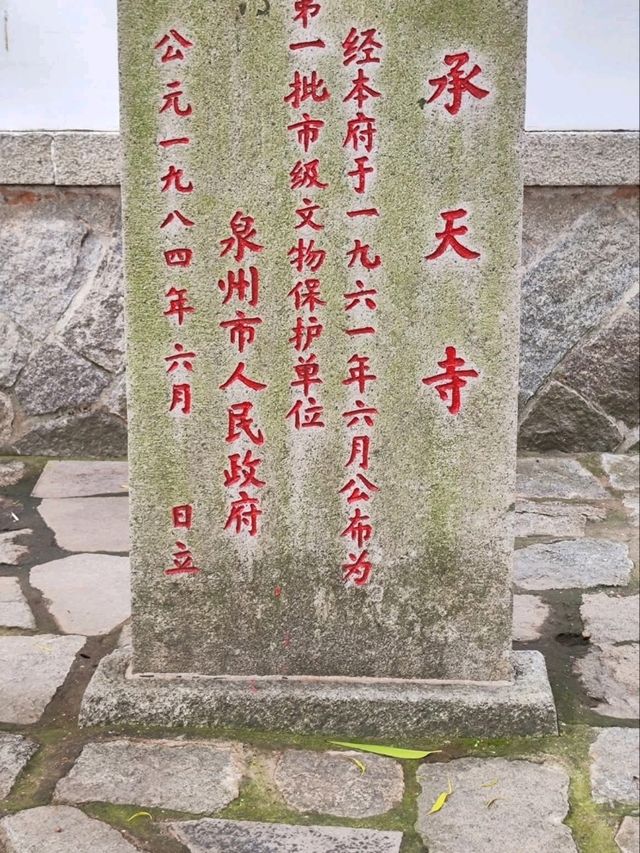 承天寺
经本府于一九六一年六月公布为
第一批市级文物保护单位
泉州市人民政府
公元一九八四年六月 日立